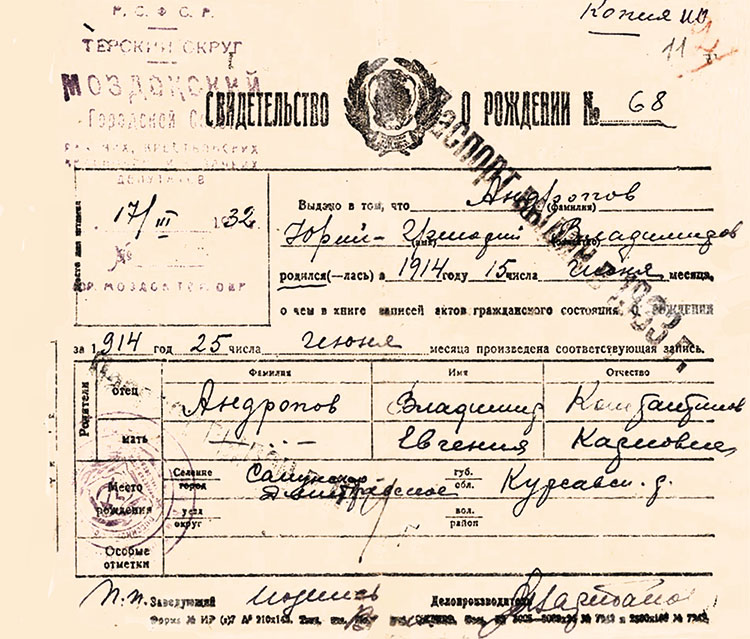 Р. С. Ф. С. Р.
Копия
ТЕРСКИЙ ОКРУГ
11
МОЗДОКСКИЙ
Городской
СВИДЕТЕЛЬСТВО О РОЖДЕНИИ № 68
ДЕПУТАТОВ
Паспорт выдан в 1933 г.
Место для штампа
17/III 1932 г.
№
ГОР. МОЗДОК ТЕР. ОКР.
Выдано в том, что Андропов
(фамилия)
Юрий- Григорий Владимиров
(имя) (отчество)
родился(—лась) в 1914 году 15 числа Июня месяца,
о чем в книге записей актов гражданского состояния о рождении
за 1914 год 25 числа Июня месяца произведена соответствующая запись.
Родители Фамилия Имя Отчество
отец Андропов Владимир Константинов
мать —"— Евгения Карловна
Место рождения
Селение
город
губ.
обл.
Курсавск. р.
уезд
округ
вол.
район
Особые отметки
п.п. Заведующий подпись Делопроизводитель